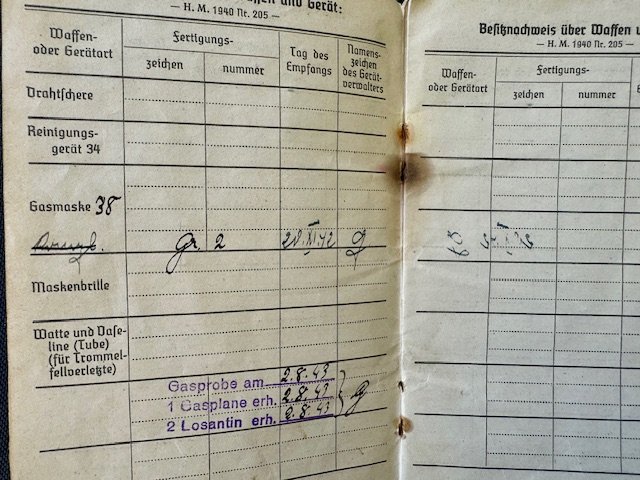 Waffen und Gerät:
— H. M. 1940 Nr. 205 —
Waffen-
oder Gerätart
Fertigungs-
zeichen
nummer
Tag des
Empfangs
Namens-
zeichen
des Gerät-
verwalters
Drahtschere
Reinigungs-
gerät 34
Gasmaske 38
Gr. 2
Maskenbrille
Watte und Vase-
line (Tube)
(für Trommel-
fellverletzte)
Gasprobe am 2.8.43
1 Gasplane erh. 2.8.43
2 Losantin erh. 2.8.43
Besitznachweis über Waffen u
— H. M. 1940 Nr. 205 —
Waffen-
oder Gerätart
Fertigungs-
zeichen
nummer